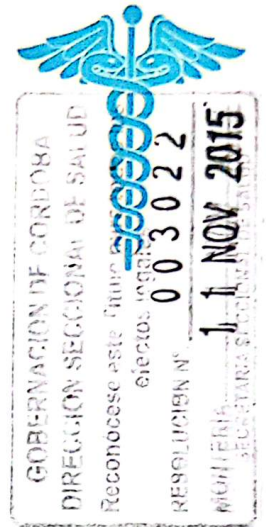 GOBERNACION DE CORDOBA
DIRECCION SECCIONAL DE SALUD
Reconócese este Título
efectos legales
RESOLUCION Nº 003022
MONTERIA 11 NOV 2015
SECRETARIA SECCIONAL DE SALUD